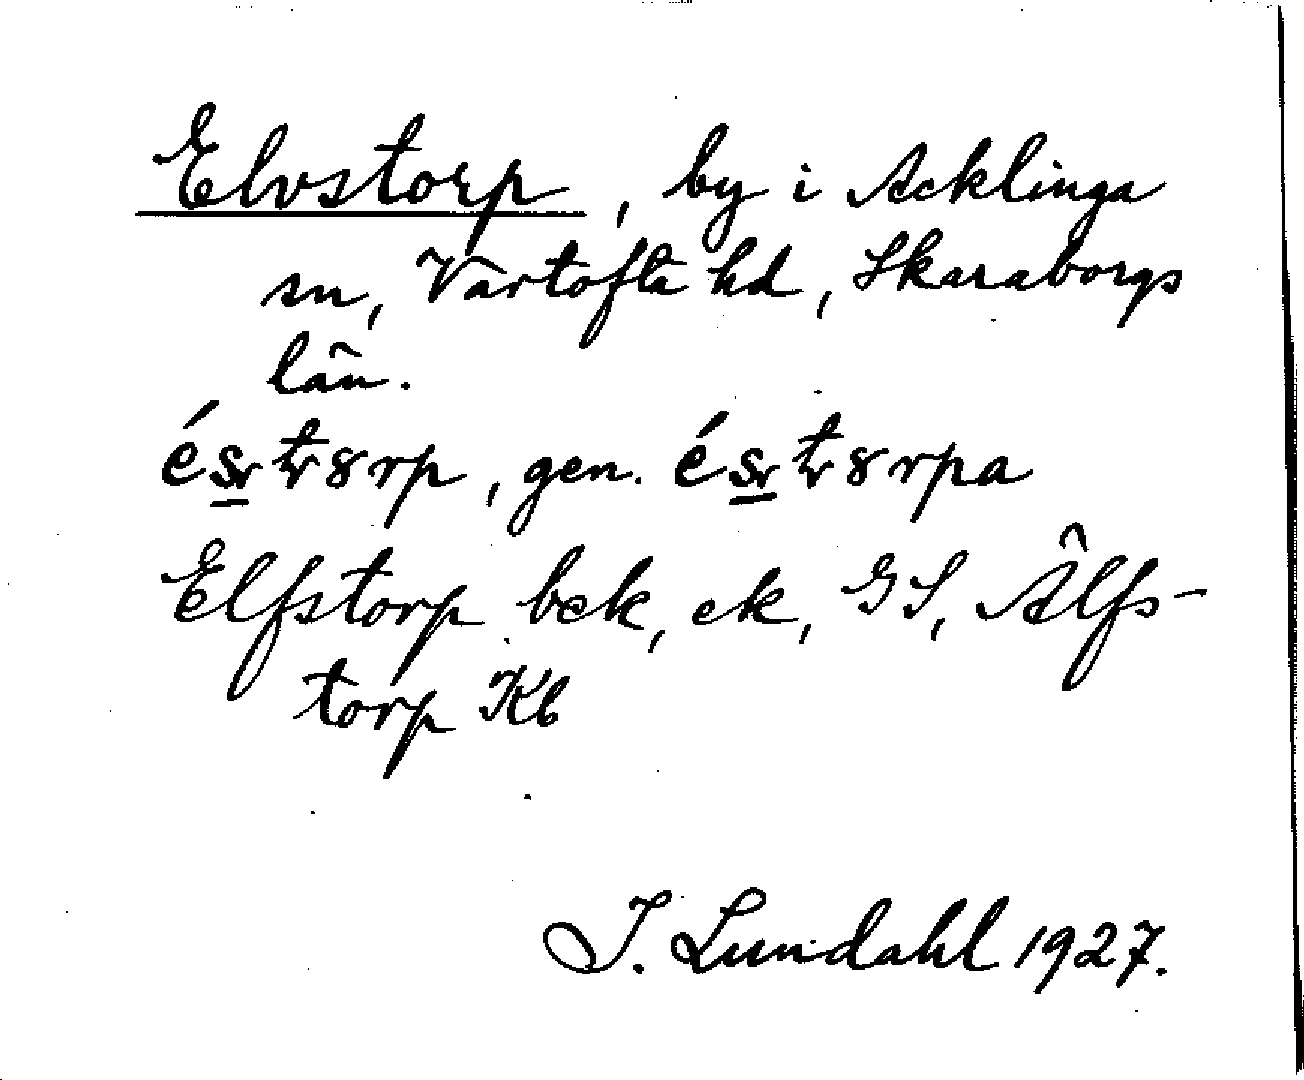 Elvstorp, by i Acklinga
sn, Vartofta hd, Skaraborgs
län.
és̠t8rp, gen. és̠t8rpa
Elfstorp bek, ek, GS, Älfs-
torp Kb
I. Lundahl 1927.